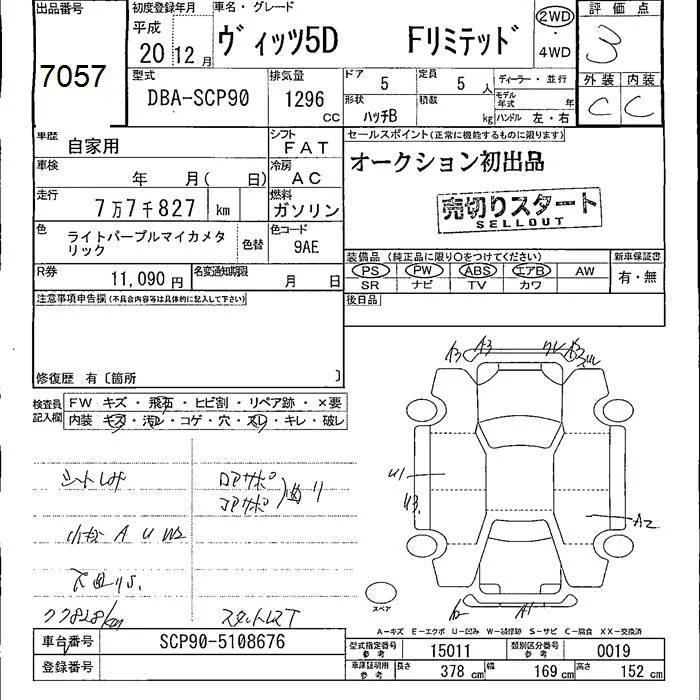 出品番号
7057
初度登録年月
平成
20 12月
車名・グレード
ヴィッツ5D Fリミテッド
2WD
・
4WD
評価点
3
外装 内装
C C
型式
DBA-SCP90
排気量
1296 CC
ドア 5
定員 5 人
形状 ハッチB
積載 kg
ディーラー・並行
モデル年式 年
ハンドル 左・右
車歴 自家用
シフト FAT
車検 年 月( 日)
冷房 AC
走行 7万7千827 km
燃料 ガソリン
色 ライトパープルマイカメタリック
色替
色コード 9AE
R券 11,090 円
名変通知期限 月 日
セールスポイント(正常に機能するものに限ります)
オークション初出品
売切りスタート
SELLOUT
装備品 (純正品に限り○をつけてください)
新車保証書
PS PW ABS エアB AW
有・無
SR ナビ TV カワ
後日品
注意事項申告欄(不具合内容等は具体的に記入して下さい)
修復歴 有〔箇所 〕
検査員記入欄
FW キズ・飛石・ヒビ割・リペア跡・×要
内装 キズ・汚レ・コゲ・穴・スレ・キレ・破レ
小キズ A U W2
下回りS.
77828km
スタットレスT
A3
A3
U1
U3
A2
A1
スペア
A-キズ E-エクボ U-凹み W-補修跡 S-サビ C-腐食 XX-交換済
車台番号 SCP90-5108676
登録番号
型式指定番号 参考 15011
類別区分番号 参考 0019
車庫証明用 参考 長さ 378 cm 幅 169 cm 高さ 152 cm